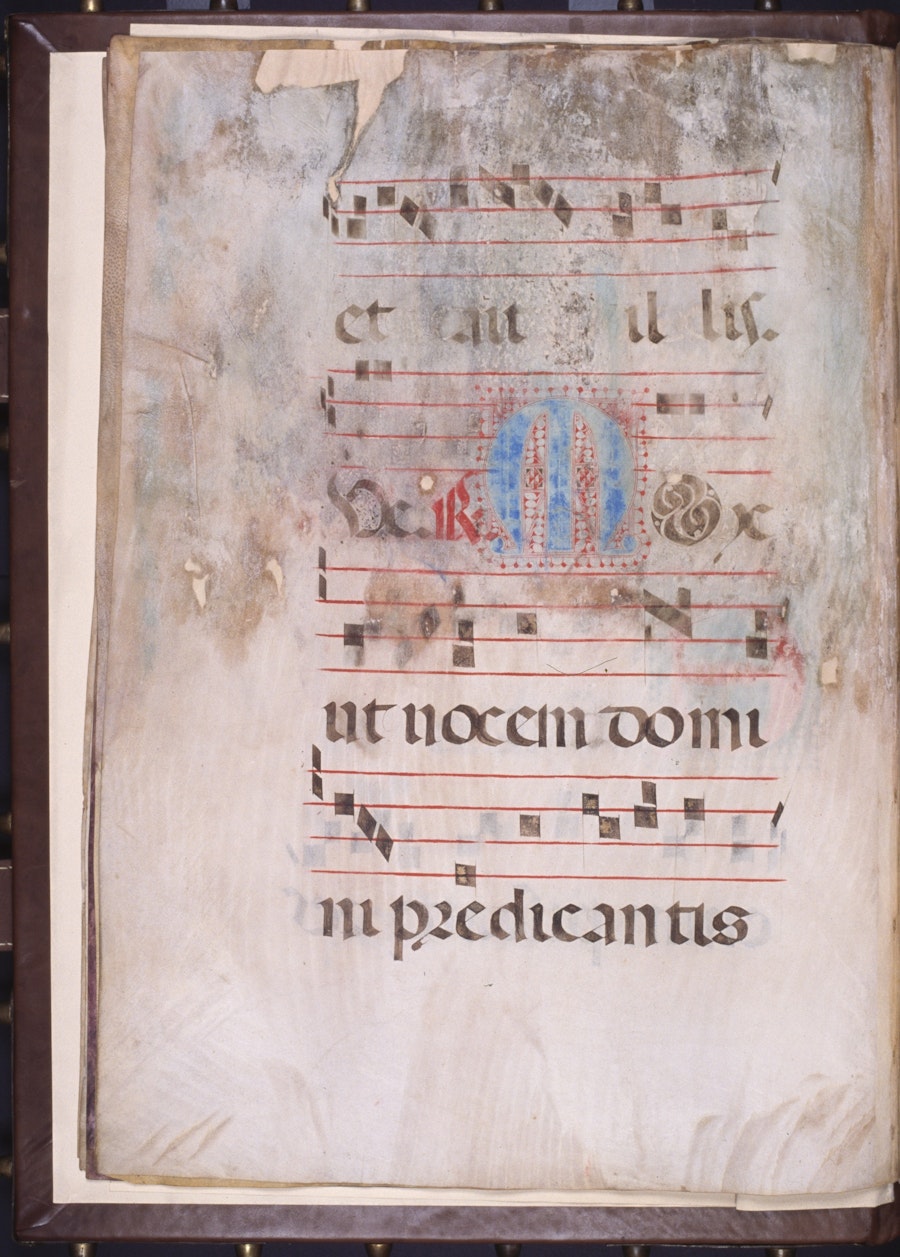 et au il lis.
Ve. R. MOx
ut uocem domi
ni predicantis